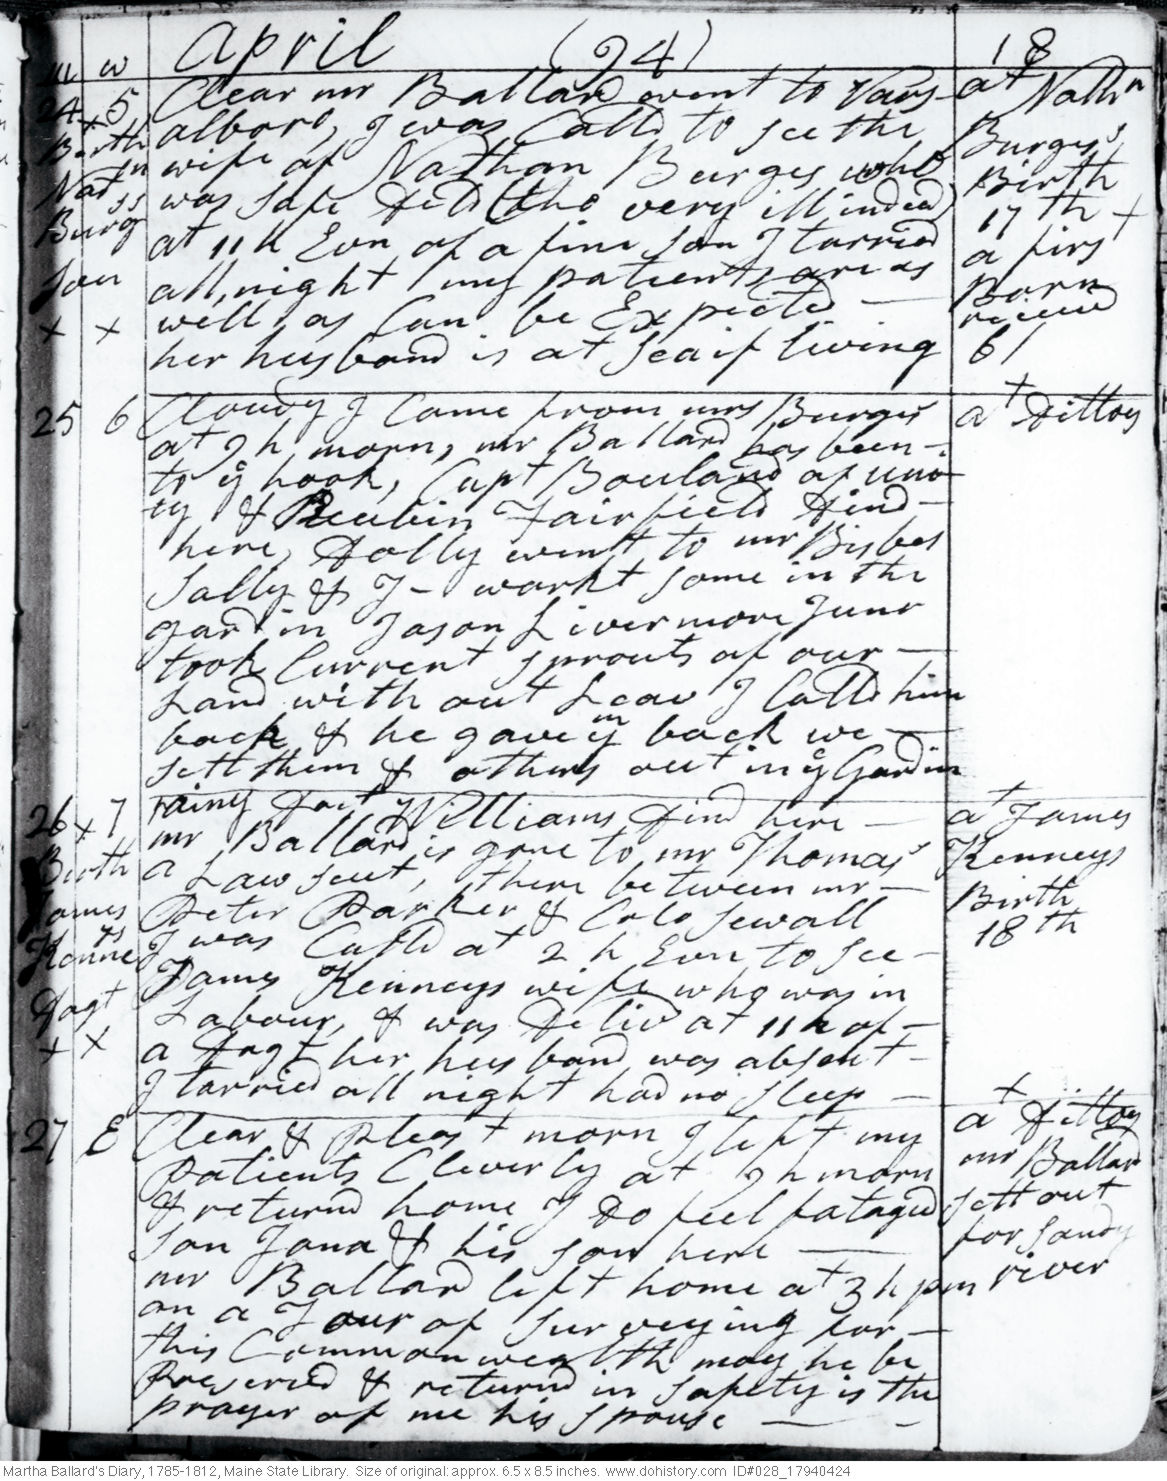 m w April (24) 18
24 5 Clear mr Ballard went to Vass- at Nathn
x alboro, I was Calld to see the Burges's
Birth wife of Nathan Burges who Birth
in Natn was safe deld (tho very ill indeed) 17th +
Burgss at 11 h Evn of a fine son I tarried a first
son all, night my patients are as Born
x x well as Can be Expected — receivd
her husband is at sea if living 6/
25 6 Cloudy I Came from mrs Burges at dittoes
at 9 h morn, mr Ballard has been -
to ye hook, Capt Bouland of uno
ty & Reubin Fairfield dind -
here, dolly went to mr Bisbes
Sally & I - workt some in the
gardin Jason Livermore Junr
took Current sprouts of our -
Land with out Leav I Calld him
back & he gave ym back we -
sett them & others out in ye Gardin
26 x 7 rainy Doct Williams dind here - at James
Birth mr Ballard is gone to mr Thomas's Kenneys
a Law seut, there between mr - Birth
James Peter Parker & Colo Sewall 18th
Kenneys I was Calld at 2 h Evn to see -
James Kenneys wife who was in
dagt Labour, & was deliv at 11 h of -
x x a dagt her husband was absent -
I tarried all night had no sleep -
27 E Clear & pleast morn I left my at dittoes
patients Cleverly at 9 h morn mr Ballard
& returnd home I do feel fatagud sett out
son Jona & his son here — for sandy
mr Ballard left home at 3 h pm river
on a Tour of surveying for -
this Commonwealth may he be
Preservd & returnd in safety is the
prayer of me his spouse — -
Martha Ballard's Diary, 1785-1812, Maine State Library. Size of original: approx. 6.5 x 8.5 inches. www.dohistory.com ID#028_17940424